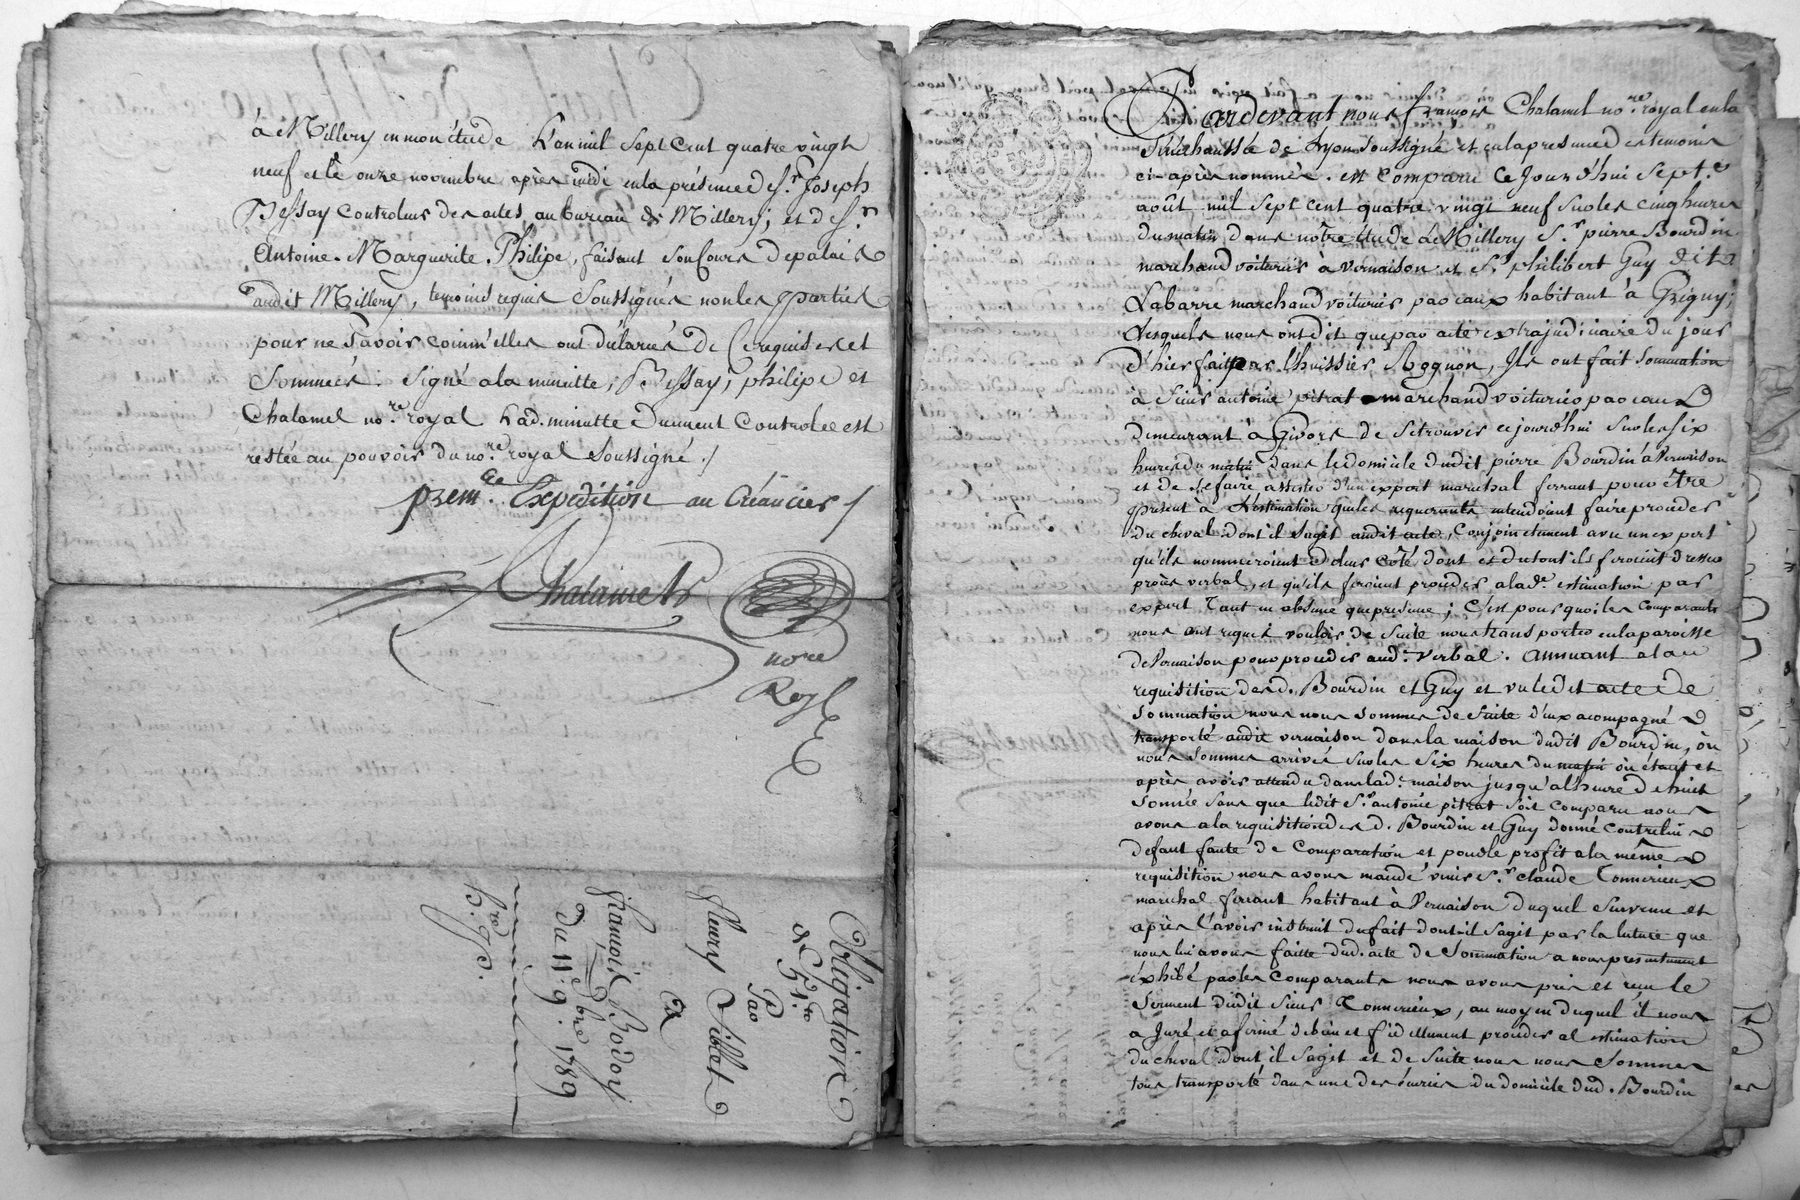 à Millery en mon étude L'an mil sept cent quatre vingt
neuf et le onze novembre après midi en la présence de Sr. Joseph
Bessay controleur des actes au bureau de Millery; et de Sr.
Antoine Marguerite Philipe, faisant son Cours de palais
audit Millery, temoins requis Soussignés non les parties
pour ne Savoir comm'elles ont déclarés de Ce requises et
Sommées. Signé a la minutte, Bessay, philipe et
Chalamel nore. royal Lad. minutte duement Controlee est
restée au pouvoir du nore. royal Soussigné./
premee. Expedition au Créancier /
Chalamel
nore
Royl
Obligation
de
Par
fleury Siblat
à
françois Bodoy
Du 11 9bre 1789
Pardevant nous francois Chalamel nore. royal en la
Sénéchaussée de Lyon soussigné et en la presence des temoins
ci-après nommés. est Comparu Ce Jourd'hui Sept.
août mil sept cent quatre vingt neuf sur les cinq heures
du matin dans nôtre étude à Millery Sr. pierre Bourdin
marchand voiturier à vernaison et Sr. philibert Guy dit
Labarre marchand voiturier par eaux habitant à Grigny;
Lesquels nous ont dit que par acte extrajudiciaire du jour
d'hier fait par l'huissier Rognon, Ils ont fait Sommation
à Sieur antoine pitrat marchand voiturier par eau
demeurant à Givors de Se trouver ce jourd'hui Sur les six
heures du matin dans le domicile dudit pierre Bourdin à Vernaison
et de Se faire assister d'un expert marechal ferrant pour être
present à L'estimation que les requerants entendoient faire proceder
du cheval dont il S'agit audit acte, Conjointement avec un expert
qu'ils nommeroient de leur coté, dont et du tout ils feroient dresser
procès verbal, et qu'ils feroient proceder a lade. estimation par
expert Tant en absence que presence; C'est pourquoi les Comparants
nous ont requis vouloir de Suite nous transporter en la paroisse
de Vernaison pour proceder aud. verbal. annuant a la
requisition desd. Bourdin et Guy et vu ledit acte de
Sommation nous nous sommes de Suite d'eux acompagné
transporté audit vernaison dans la maison dudit Bourdin, où
nous Sommes arrivés Sur les Six heures du matin où étant et
après avoir attendu dans lade. maison jusqu'a l'heure de huit
Sonnée Sans que ledit Sr. antoine pitrat Soit Comparu nous
avons a la requisition desd. Bourdin et Guy donné Contre lui
defaut faute de Comparution et pour le profit a la même
requisition nous avons mandé venir Sr. claude Connerieux
marechal ferrant habitant à Vernaison duquel Survenu et
après l'avoir instruit du fait dont il S'agit par la lecture que
nous lui avons faitte dud. acte de Sommation a nous presentement
exhibé par les Comparants nous avons pris et recu le
Serment dudit Sieur Connerieux, au moyen duquel il nous
a Juré et afirmé de bien et fidellement proceder a l'estimation
du cheval dont il S'agit et de Suite nous nous Sommes
tous transporté dans une des écuries du domicile dud. Bourdin